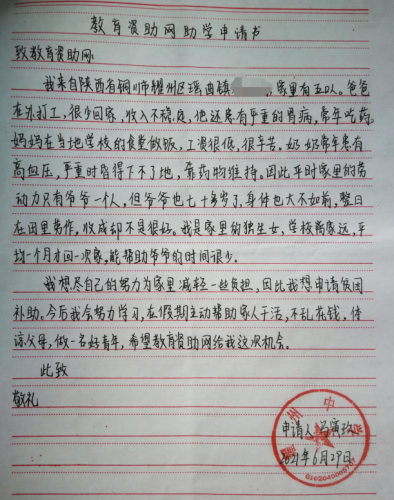 教育资助网助学申请书
致教育资助网:
我来自陕西省铜川市耀州区瑶曲镇 ,家里有五口人。爸爸
在外打工,很少回家,收入不稳定,他还患有严重的胃病,常年吃药。
妈妈在当地学校的食堂做饭,工资很低,很辛苦。奶奶常年患有
高血压,严重时昏得下不了地,靠药物维持。因此平时家里的劳
动力只有爷爷一个人,但爷爷也七十多岁了,身体也大不如前,整日
在田里劳作,收成却不是很好。我是家里的独生女,学校离家远,平
均一个月才回一次家,能帮助爷爷的时间很少。
我想尽自己的努力为家里减轻一些负担,因此我想申请贫困
补助。今后我会努力学习,在假期主动帮助家人干活,不乱花钱,体
谅父母,做一名好青年,希望教育资助网给我这次机会。
此致
敬礼
州中
申请人:冯
2021年6月29日